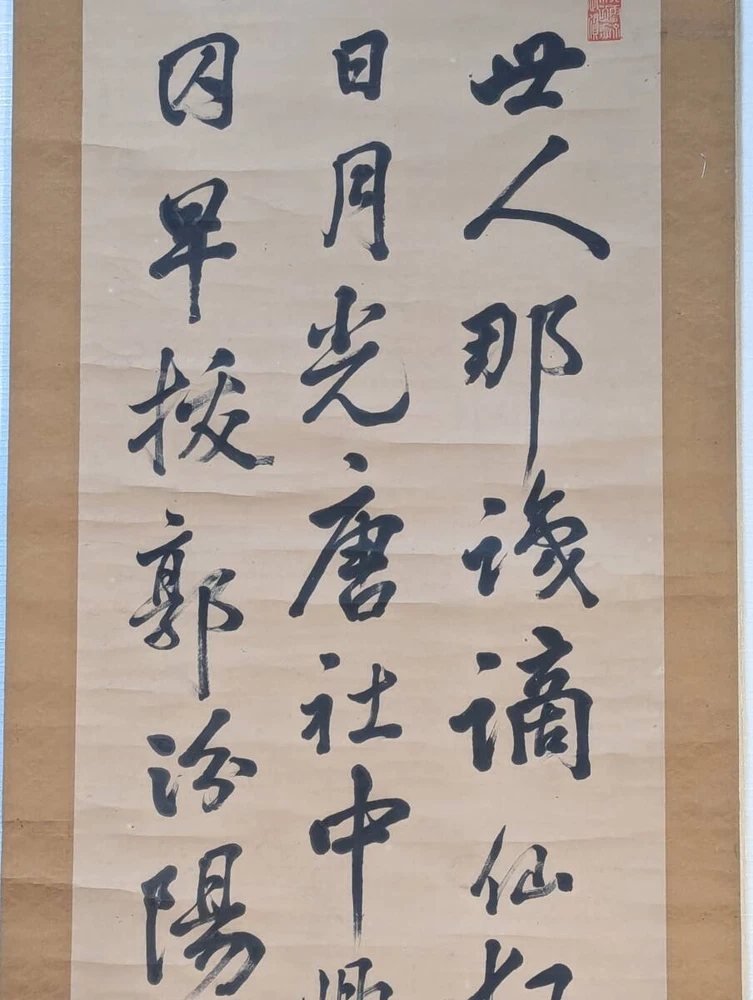 世人那識謫仙
日月光唐社中興
囚早拔郭汾陽